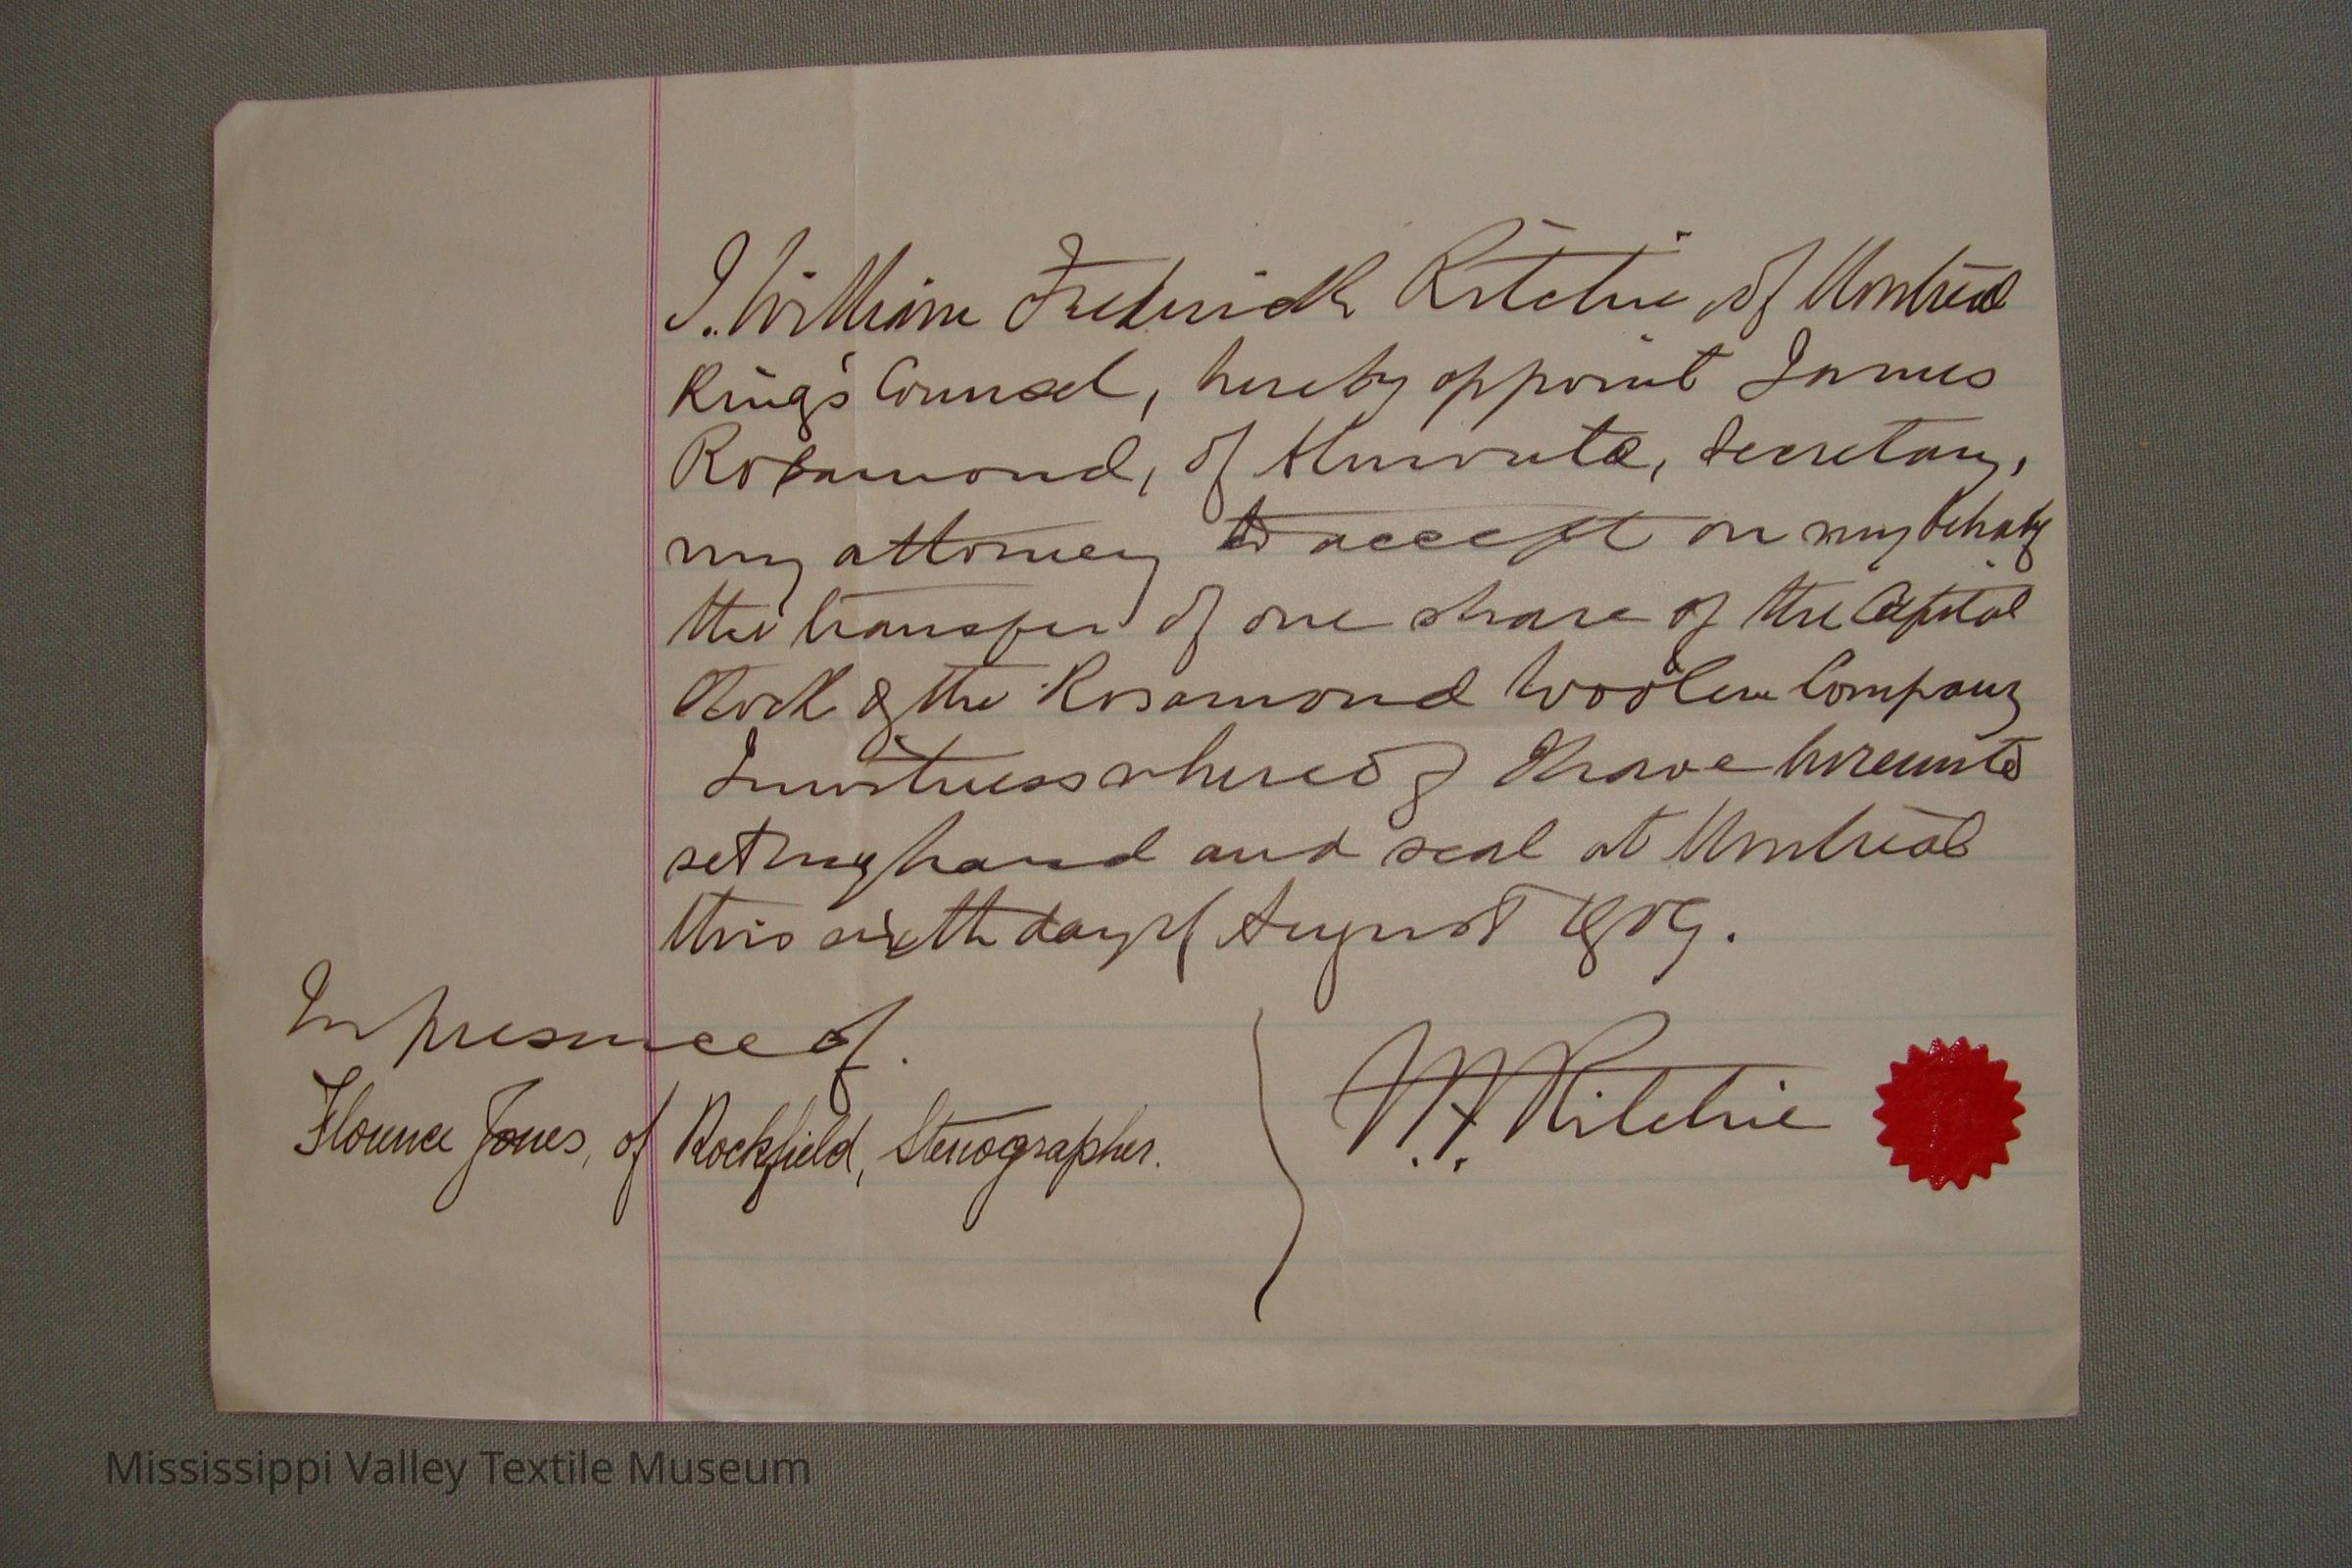 I. William Frederick Ritchie of Montreal
King's Counsel, hereby appoint James
Rosamond, of Almonte, Secretary,
my attorney to accept on my behalf
the transfer of one share of the Capital
Stock of the Rosamond Woolen Company
In witness whereof I have hereunto
set my hand and seal at Montreal
this sixth day of August 1909.
In presence of.
Florence Jones, of Rockfield, Stenographer.
W. F. Ritchie
Mississippi Valley Textile Museum